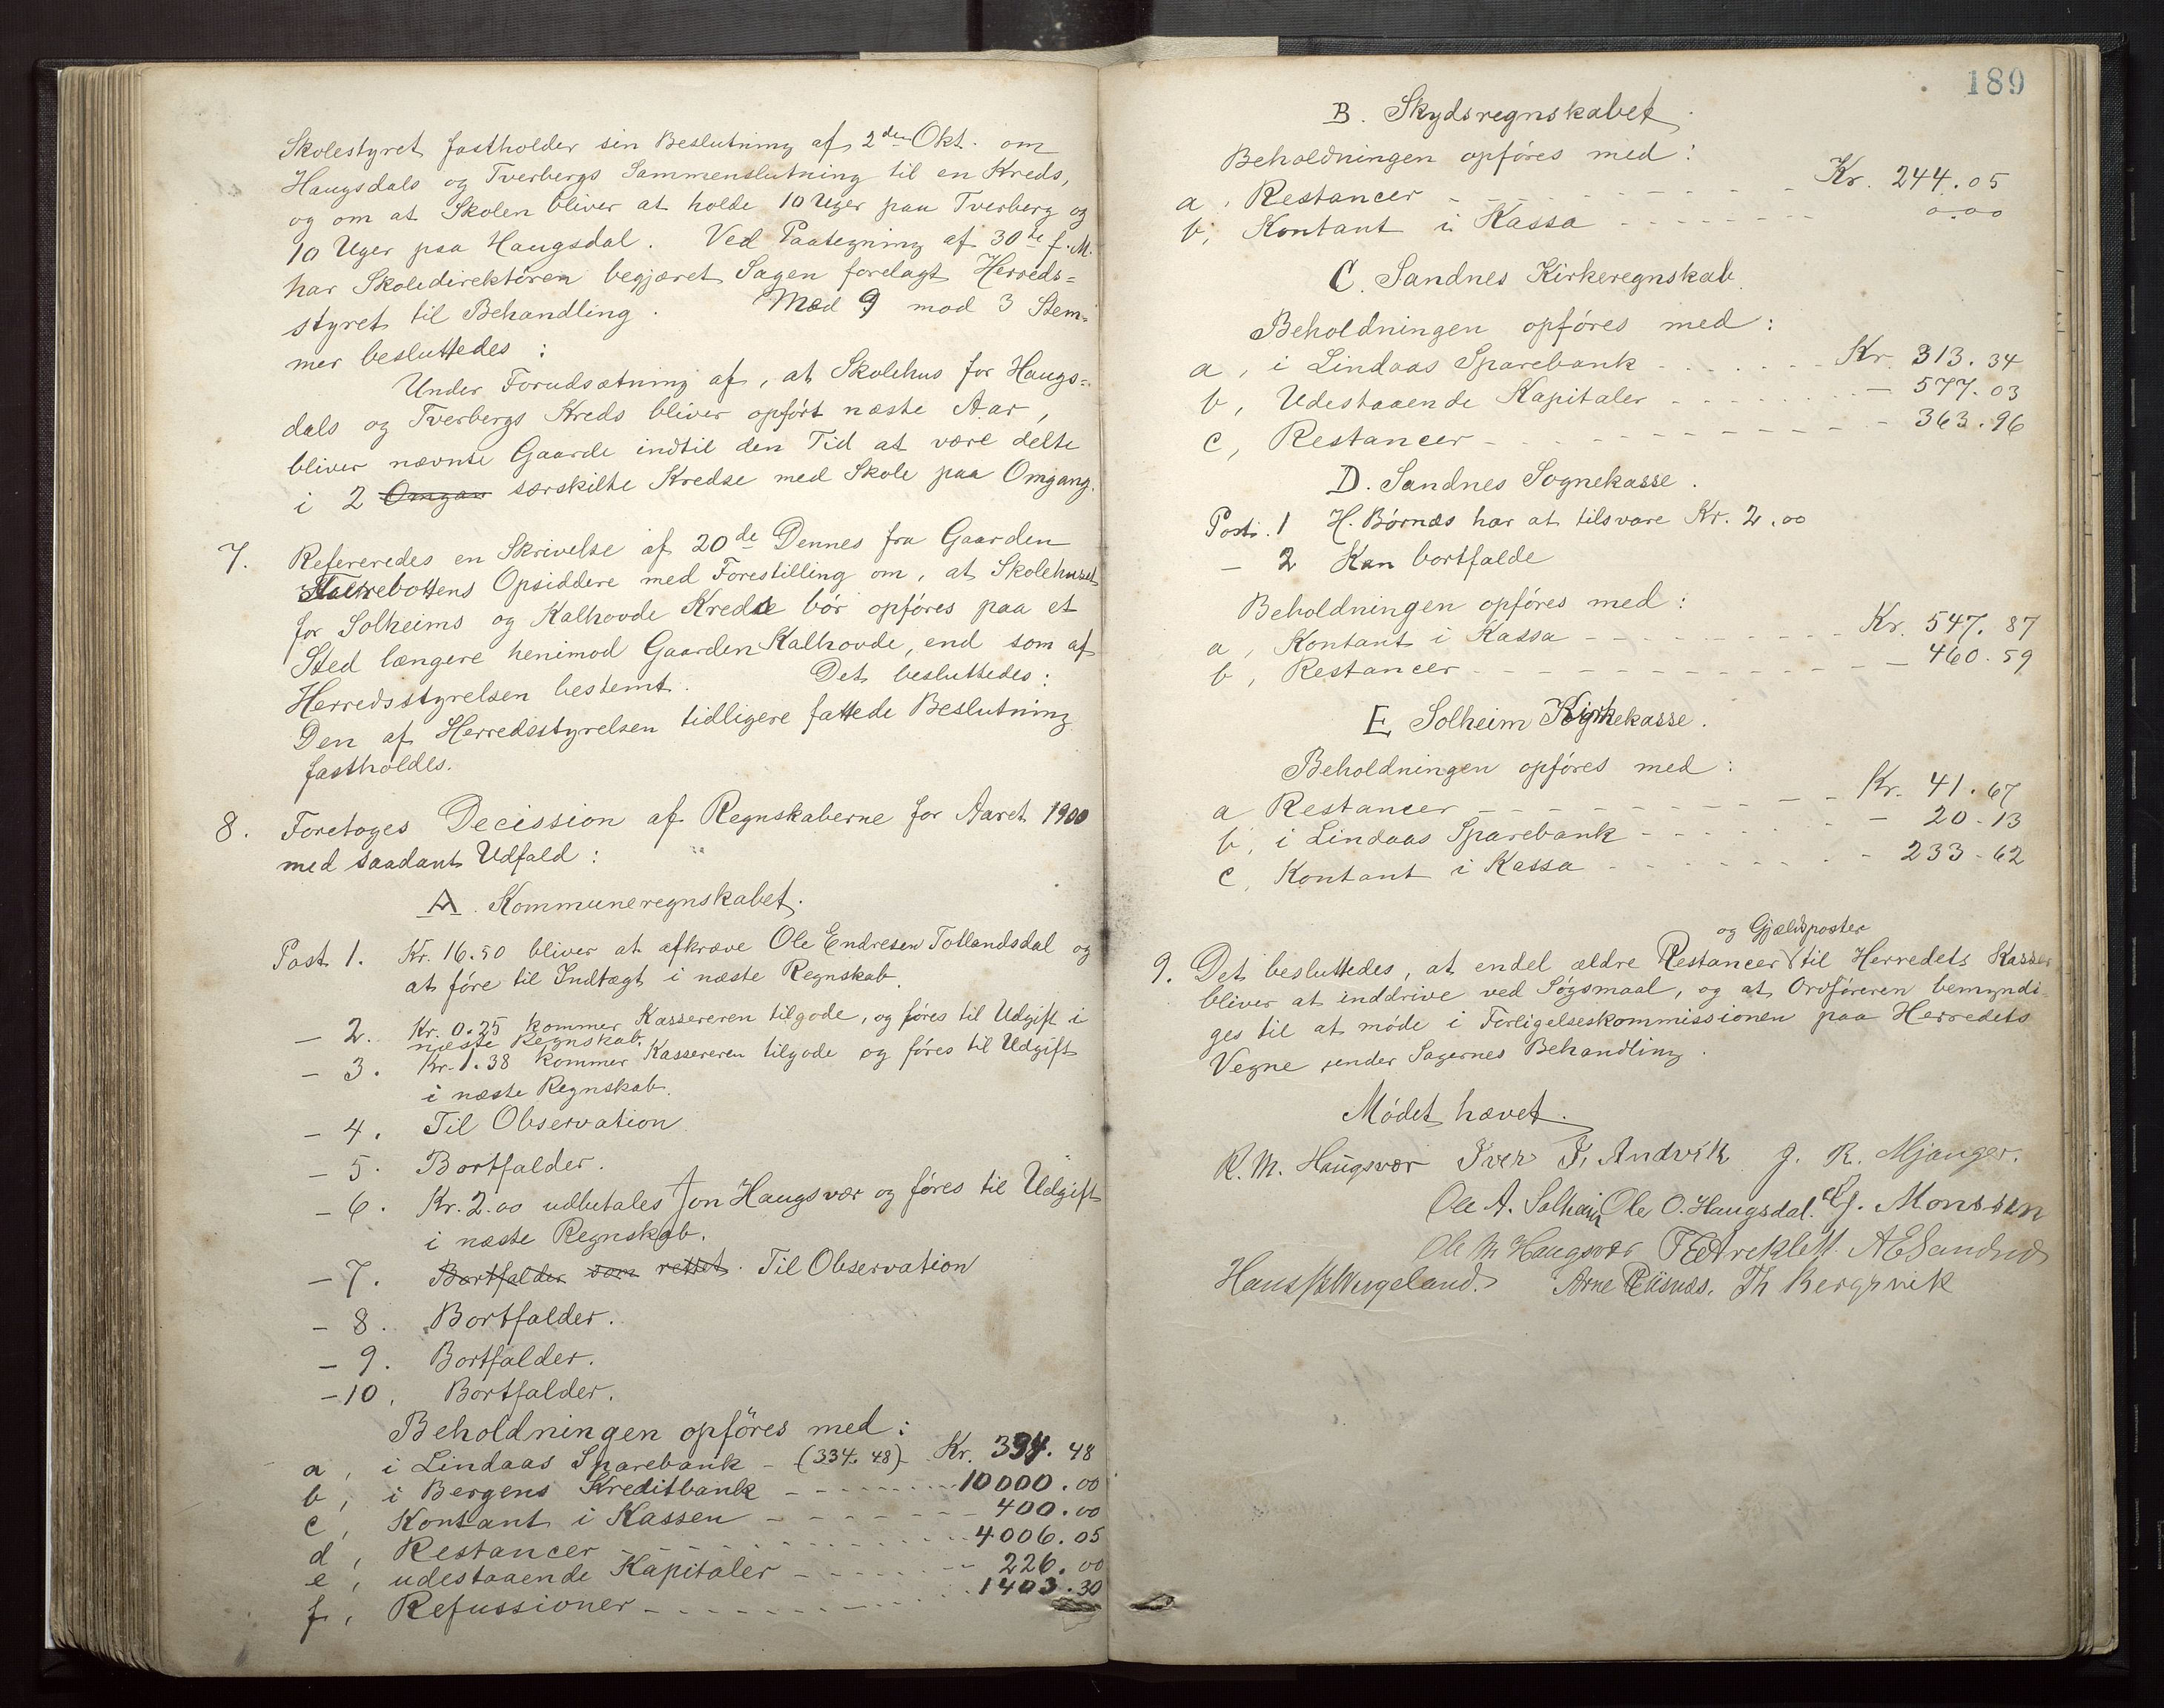 Skolestyret fastholder sin Beslutning af 2den Okt. om
Haugsdals og Tverbergs Sammenslutning til en Kreds,
og om at Skolen bliver at holde 10 Uger paa Tverberg og
10 Uger paa Haugsdal. Ved Paategning af 30te f. M.
har Skoledirektören begjæret Sagen forelagt Herreds=
styret til Behandling. Med 9 mod 3 Stem=
mer besluttedes:
Under Forudsætning af, at Skolehus for Haugs=
dals og Tverbergs Kreds bliver opfört næste Aar,
bliver nævnte Gaarde indtil den Tid at være delte
i 2 Omgan særskilte Kredse med Skole paa Omgang.
7. Refereredes en Skrivelse af 20de Dennes fra Gaarden
Opsiddere med Forestilling om, at Skolehuset
for Solheims og Kalhovde Kreds bör opföres paa et
Sted længere henimod Gaarden Kalhovde, end som af
Herredsstyrelsen bestemt. Det besluttedes:
Den af Herredsstyrelsen tidligere fattede Beslutning
fastholdes.
8. Foretoges Decission af Regnskaberne for Aaret 1900
med saadant Udfald:
A. Kommuneregnskabet.
Post 1. Kr. 16.50 bliver at afkræve Ole Endresen Totlandsdal og
at före til Indtægt i næste Regnskab.
— 2. Kr. 0.25 kommer Kassereren tilgode, og föres til Udgift i
næste Regnskab.
— 3. Kr. 1.38 kommer Kassereren tilgode og föres til Udgift
i næste Regnskab.
— 4. Til Observation
— 5. Bortfalder.
— 6. Kr. 2.00 udbetales Jon Haugsvær og föres til Udgift
i næste Regnskab.
— 7. Bortfalder som rettet. Til Observation
— 8. Bortfalder.
— 9. Bortfalder.
— 10. Bortfalder.
Beholdningen opföres med:
a, i Lindaas Sparebank - (334.48) Kr. 334.48
b, i Bergens Kreditbank - 10000.00
c, Kontant i Kassen - 400.00
d, Restancer - 4006.05
e, udestaaende Kapitaler - 226.00
f, Refussioner - 1403.30
189
B. Skydsregnskabet.
Beholdningen opföres med:
a, Restancer - Kr. 244.05
b, Kontant i Kassa - 0.00
C. Sandnes Kirkeregnskab.
Beholdningen opföres med:
a, i Lindaas Sparebank - Kr. 313.34
b, Udestaaende Kapitaler - 577.03
c, Restancer - 363.96
D. Sandnes Sognekasse.
Post. 1 H. Börnæs har at tilsvare Kr. 2.00
— 2 Kan bortfalde
Beholdningen opföres med:
a, Kontant i Kassa - Kr. 547.87
b, Restancer - 460.59
E Solheim Kirkekasse.
Beholdningen opföres med:
a Restancer - Kr. 41.67
b, i Lindaas Sparebank - 20.13
c, Kontant i Kassa - 233.62
og Gjældsposter
9. Det besluttedes, at endel ældre Restancer til Herredets Kasser
bliver at inddrive ved Sögsmaal, og at Ordföreren bemyndi
ges til at möde i Forligelseskommissionen paa Herredets
Vegne under Sagernes Behandling.
Mödet hævet.
R. M. Haugsvær Iver I. Andvik J. R. Mjanger.
Ole A. Solheim Ole O. Haugsdal. G. Monssen
Ole M Haugsvær A E Sandnes
Hans Wergeland. Arne Risnæs. Th Bergsvik